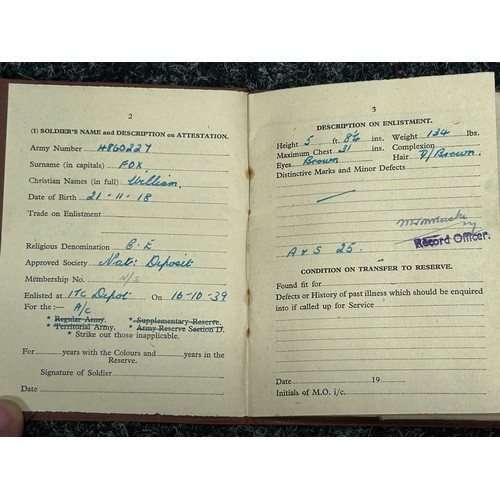 2
(1) SOLDIER'S NAME and DESCRIPTION on ATTESTATION.
Army Number 4860227
Surname (in capitals) FOX.
Christian Names (in full) William.
Date of Birth 21-11-18
Trade on Enlistment
Religious Denomination C.E
Approved Society Nat: Deposit
Membership No. N/S
Enlisted at ITC Depot On 16-10-39
For the :— A/C
* Regular Army. * Supplementary Reserve.
* Territorial Army. * Army Reserve Section D.
* Strike out those inapplicable.
For years with the Colours and years in the
Reserve.
Signature of Soldier
Date
3
DESCRIPTION ON ENLISTMENT.
Height 5 ft. 8½ ins. Weight 134 lbs.
Maximum Chest 31 ins. Complexion
Eyes Brown Hair D/Brown.
Distinctive Marks and Minor Defects
A & S 25.
Record Officer.
CONDITION ON TRANSFER TO RESERVE.
Found fit for
Defects or History of past illness which should be enquired
into if called up for Service
Date 19
Initials of M.O. i/c.